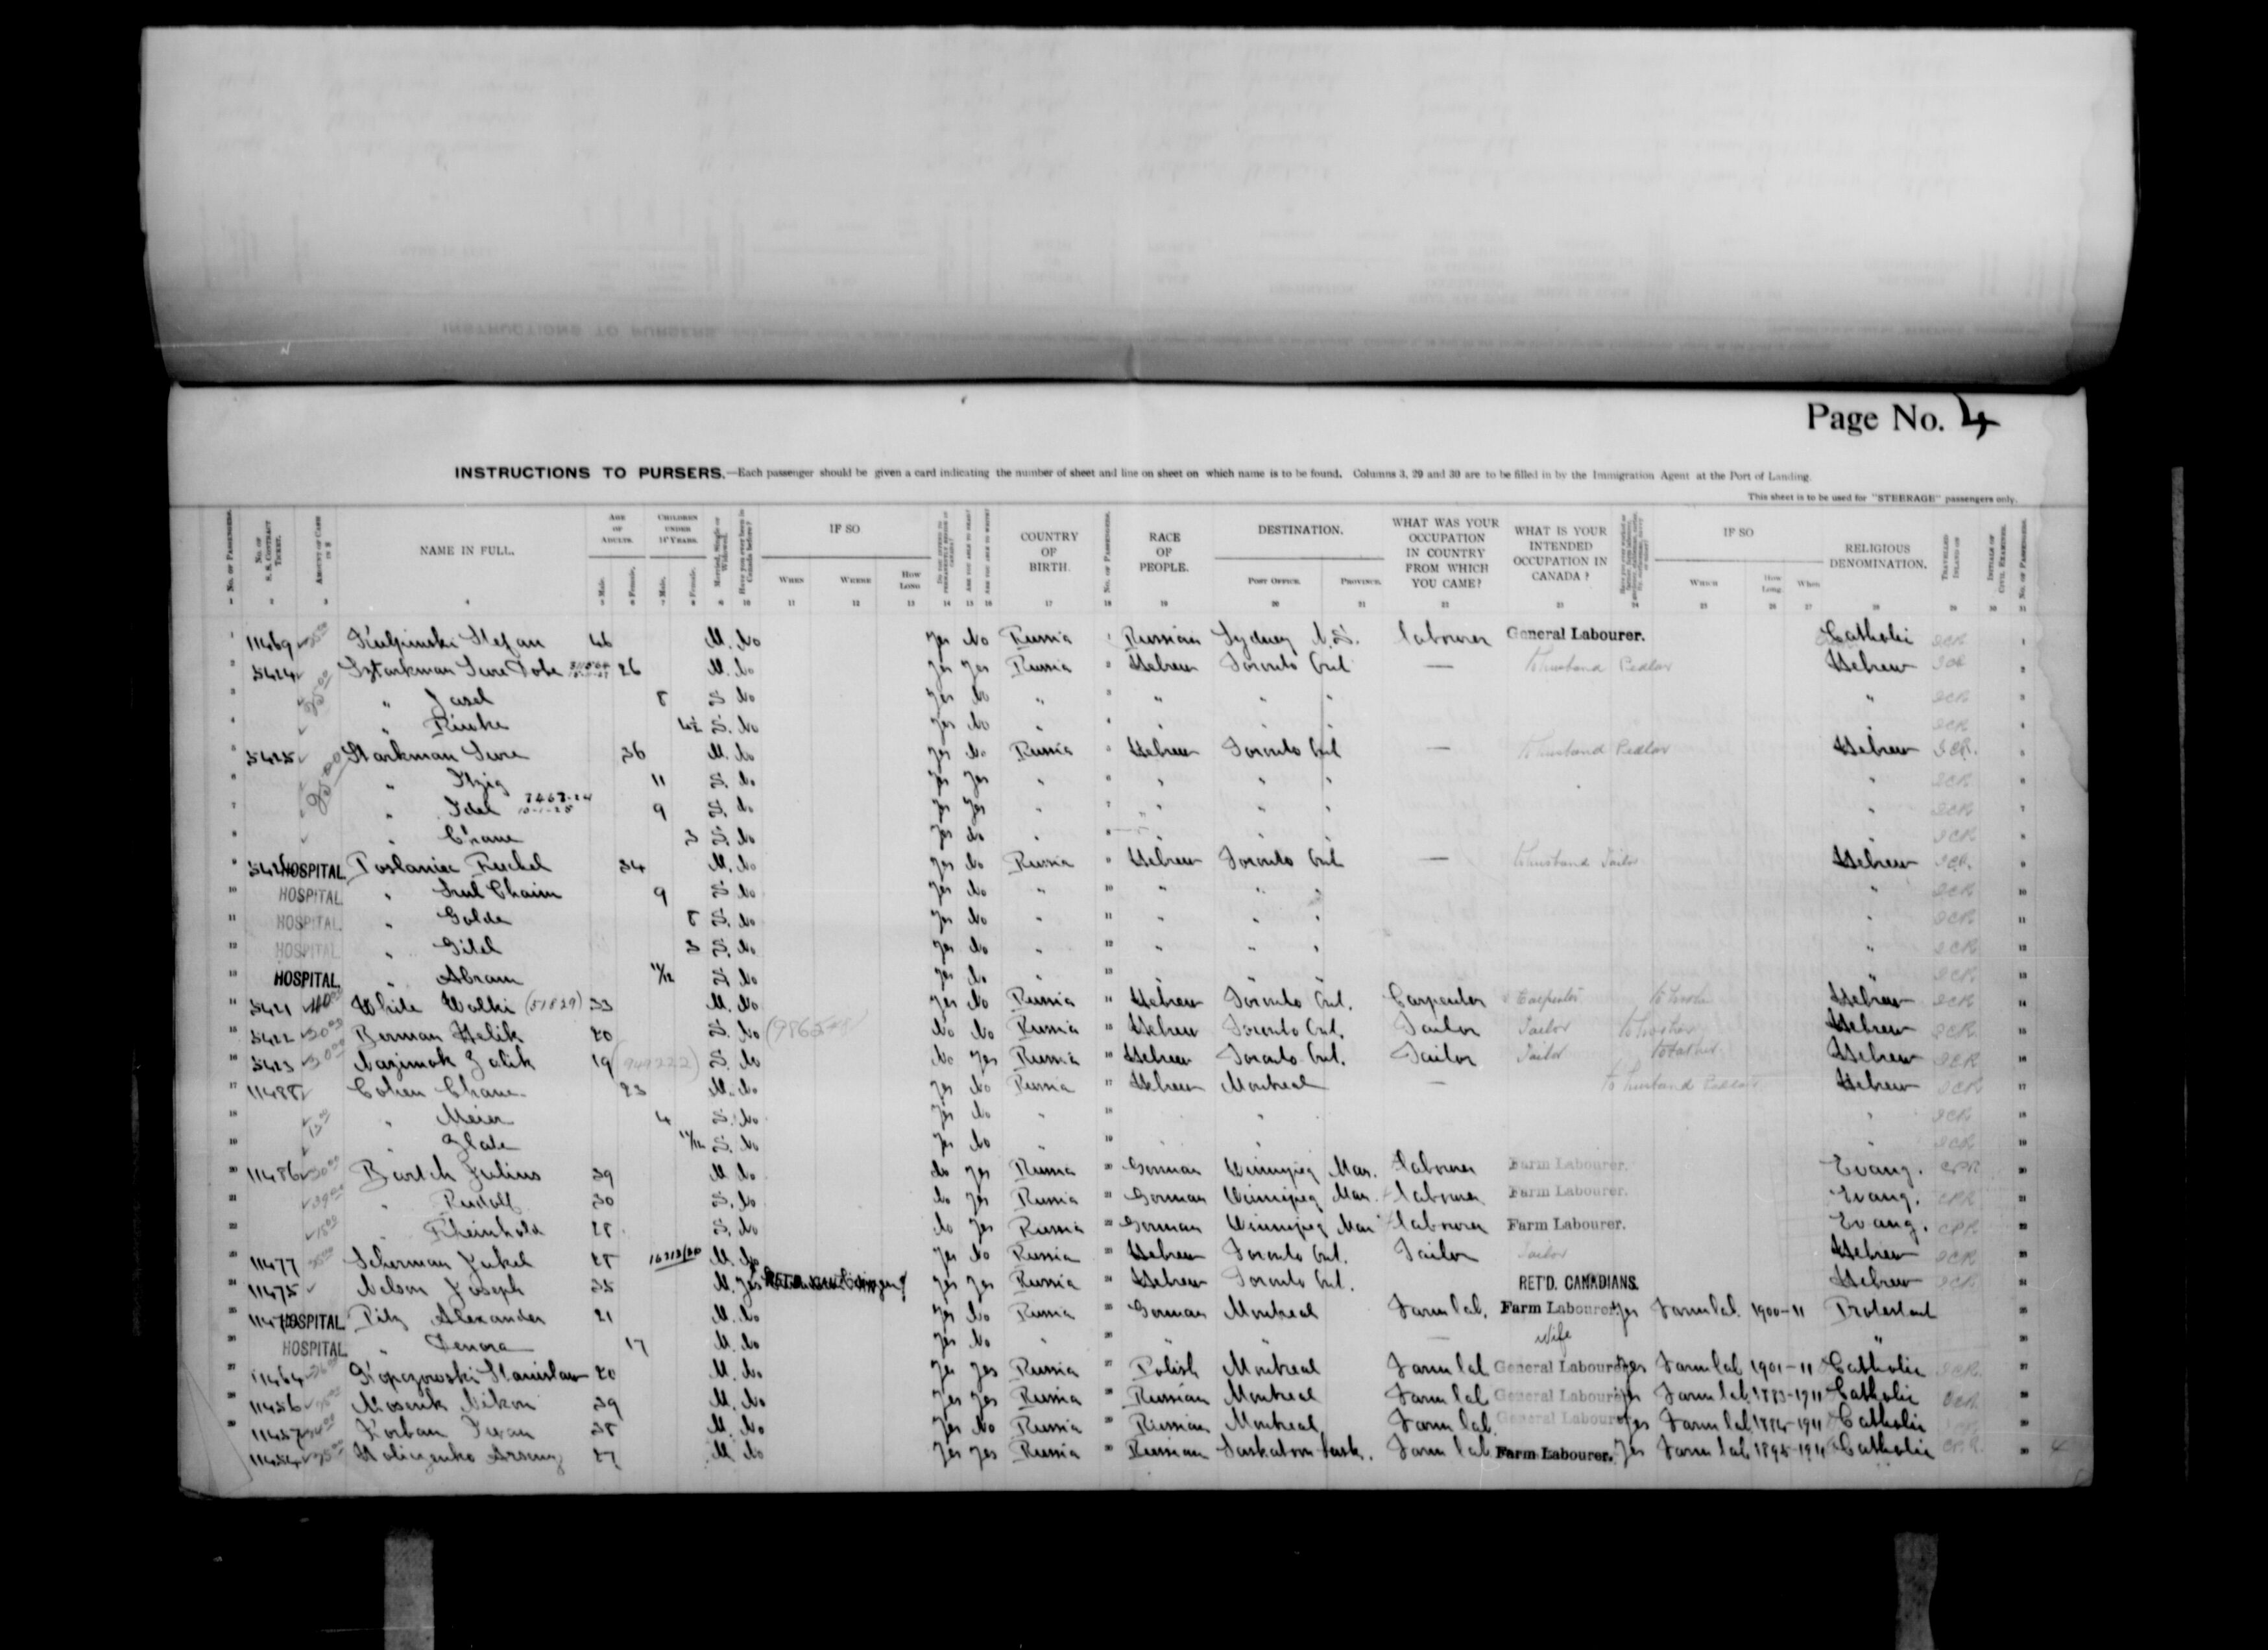 Page No. 4
INSTRUCTIONS TO PURSERS.—Each passenger should be given a card indicating the number of sheet and line on sheet on which name is to be found. Columns 3, 29 and 30 are to be filled in by the Immigration Agent at the Port of Landing.
This sheet is to be used for "STEERAGE" passengers only.
No. of Passengers. No. of S. S. Contract Ticket. Amount of Cash in $ NAME IN FULL. Age of Adults. Children under 14 Years. Married, Single or Widowed. Have you ever been in Canada before? IF SO COUNTRY OF BIRTH. No. of Passengers. RACE OF PEOPLE. DESTINATION. WHAT WAS YOUR OCCUPATION IN COUNTRY FROM WHICH YOU CAME? WHAT IS YOUR INTENDED OCCUPATION IN CANADA? IF SO RELIGIOUS DENOMINATION. Travelled Inland on Initials of Civil Examiner. No. of Passengers.
Male. Female. Male. Female. When Where How Long Post Office. Province. Which How Long. When
1 2 3 4 5 6 7 8 9 10 11 12 13 14 15 16 17 18 19 20 21 22 23 24 25 26 27 28 29 30 31
1 11469 Stefan 46 M. No Yes No Russia 1 Russian Sydney N.S. labourer General Labourer. Catholic 1
2 5424 Sztarkman Sure 26 M. No Yes Yes Russia 2 Hebrew Toronto Ont — To husband Pedlar Hebrew 2
3 " Jasel 8 S No Yes No " 3 " " " " 3
4 " Rinke 4½ S. No Yes No " 4 " " " " 4
5 5425 Starkman Sure 36 M. No Yes No Russia 5 Hebrew Toronto Ont — To husband Pedlar Hebrew 5
6 " Itzig 11 S. No Yes Yes " 6 " " " " 6
7 " Idel 10-1-25 9 S. No Yes Yes " 7 " " " " 7
8 " Chane 3 S. No Yes No " 8 " " " " 8
9 HOSPITAL Poslaniec Ruchel 34 M. No Yes No Russia 9 Hebrew Toronto Ont — To husband Tailor Hebrew 9
10 HOSPITAL " Srul Chaim 9 S No Yes No " 10 " " " " 10
11 HOSPITAL " Golde 8 S. No Yes No " 11 " " " " 11
12 HOSPITAL " Gitel 3 S. No Yes No " 12 " " " " 12
13 HOSPITAL " Abram 11/12 S. No Yes No " 13 " " " " 13
14 5421 White Wolki (51829) 33 M. No Yes No Russia 14 Hebrew Toronto Ont. Carpenter Carpenter Hebrew 14
15 5422 Berman Helik 20 S. No No No Russia 15 Hebrew Toronto Ont. Tailor Tailor Hebrew 15
16 5423 Nazimok Zalik 19 (949222) S. No No Yes Russia 16 Hebrew Toronto Ont. Tailor Tailor Hebrew 16
17 11488 Cohen Chane 23 M. No Yes No Russia 17 Hebrew Montreal — to husband Hebrew 17
18 " Meier 4 S. No Yes No " 18 " " 18
19 " Zlate 11/12 S. No Yes No " 19 " " 19
20 11486 Bartch Julius 39 M No No Yes Russia 20 German Winnipeg Man. labourer Farm Labourer. Evang. CPR 20
21 " Rudolf 30 S. No No Yes Russia 21 German Winnipeg Man. labourer Farm Labourer. Evang. CPR 21
22 " Rheinhold 28 S. No No Yes Russia 22 German Winnipeg Man labourer Farm Labourer. Evang. CPR. 22
23 11477 Scherman Jukel 28 M. No Yes No Russia 23 Hebrew Toronto Ont. Tailor Tailor Hebrew 23
24 11475 Nelson Joseph 35 M. Yes Yes Yes Russia 24 Hebrew Toronto Ont. RET'D. CANADIANS. Hebrew 24
25 HOSPITAL Pilz Alexander 21 M. No Yes No Russia 25 German Montreal Farm lab. Farm Labourer. Yes Farm lab. 1900-11 Protestant 25
26 HOSPITAL " 17 M. No Yes No " 26 " " — Wife " 26
27 11464 Kopczowski Stanislaw 20 M. No Yes Yes Russia 27 Polish Montreal Farm lab General Labourer. Yes Farm lab 1901-11 Catholic 27
28 11456 Mosenk Nikon 39 M. No Yes Yes Russia 28 Russian Montreal Farm lab General Labourer. Yes Farm lab 1883-1911 Catholic 28
29 11457 Korban Iwan 38 M. No Yes No Russia 29 Russian Montreal Farm lab. General Labourer Yes Farm lab 1884-1911 Catholic 29
30 11454 27 M No Yes Yes Russia 30 Russian Saskatoon Sask. Farm lab Farm Labourer. Yes Farm lab 1895-1911 Catholic 30 4